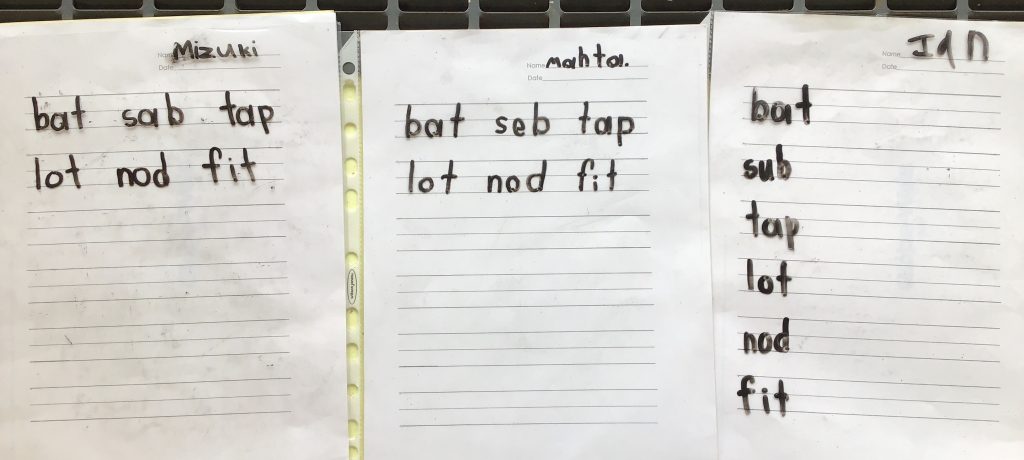 Name Mizuki
Date
bat sab tap
lot nod fit
Name Mahta.
Date
bat seb tap
lot nod fit
Name Ian
Date
bat
sub
tap
lot
nod
fit